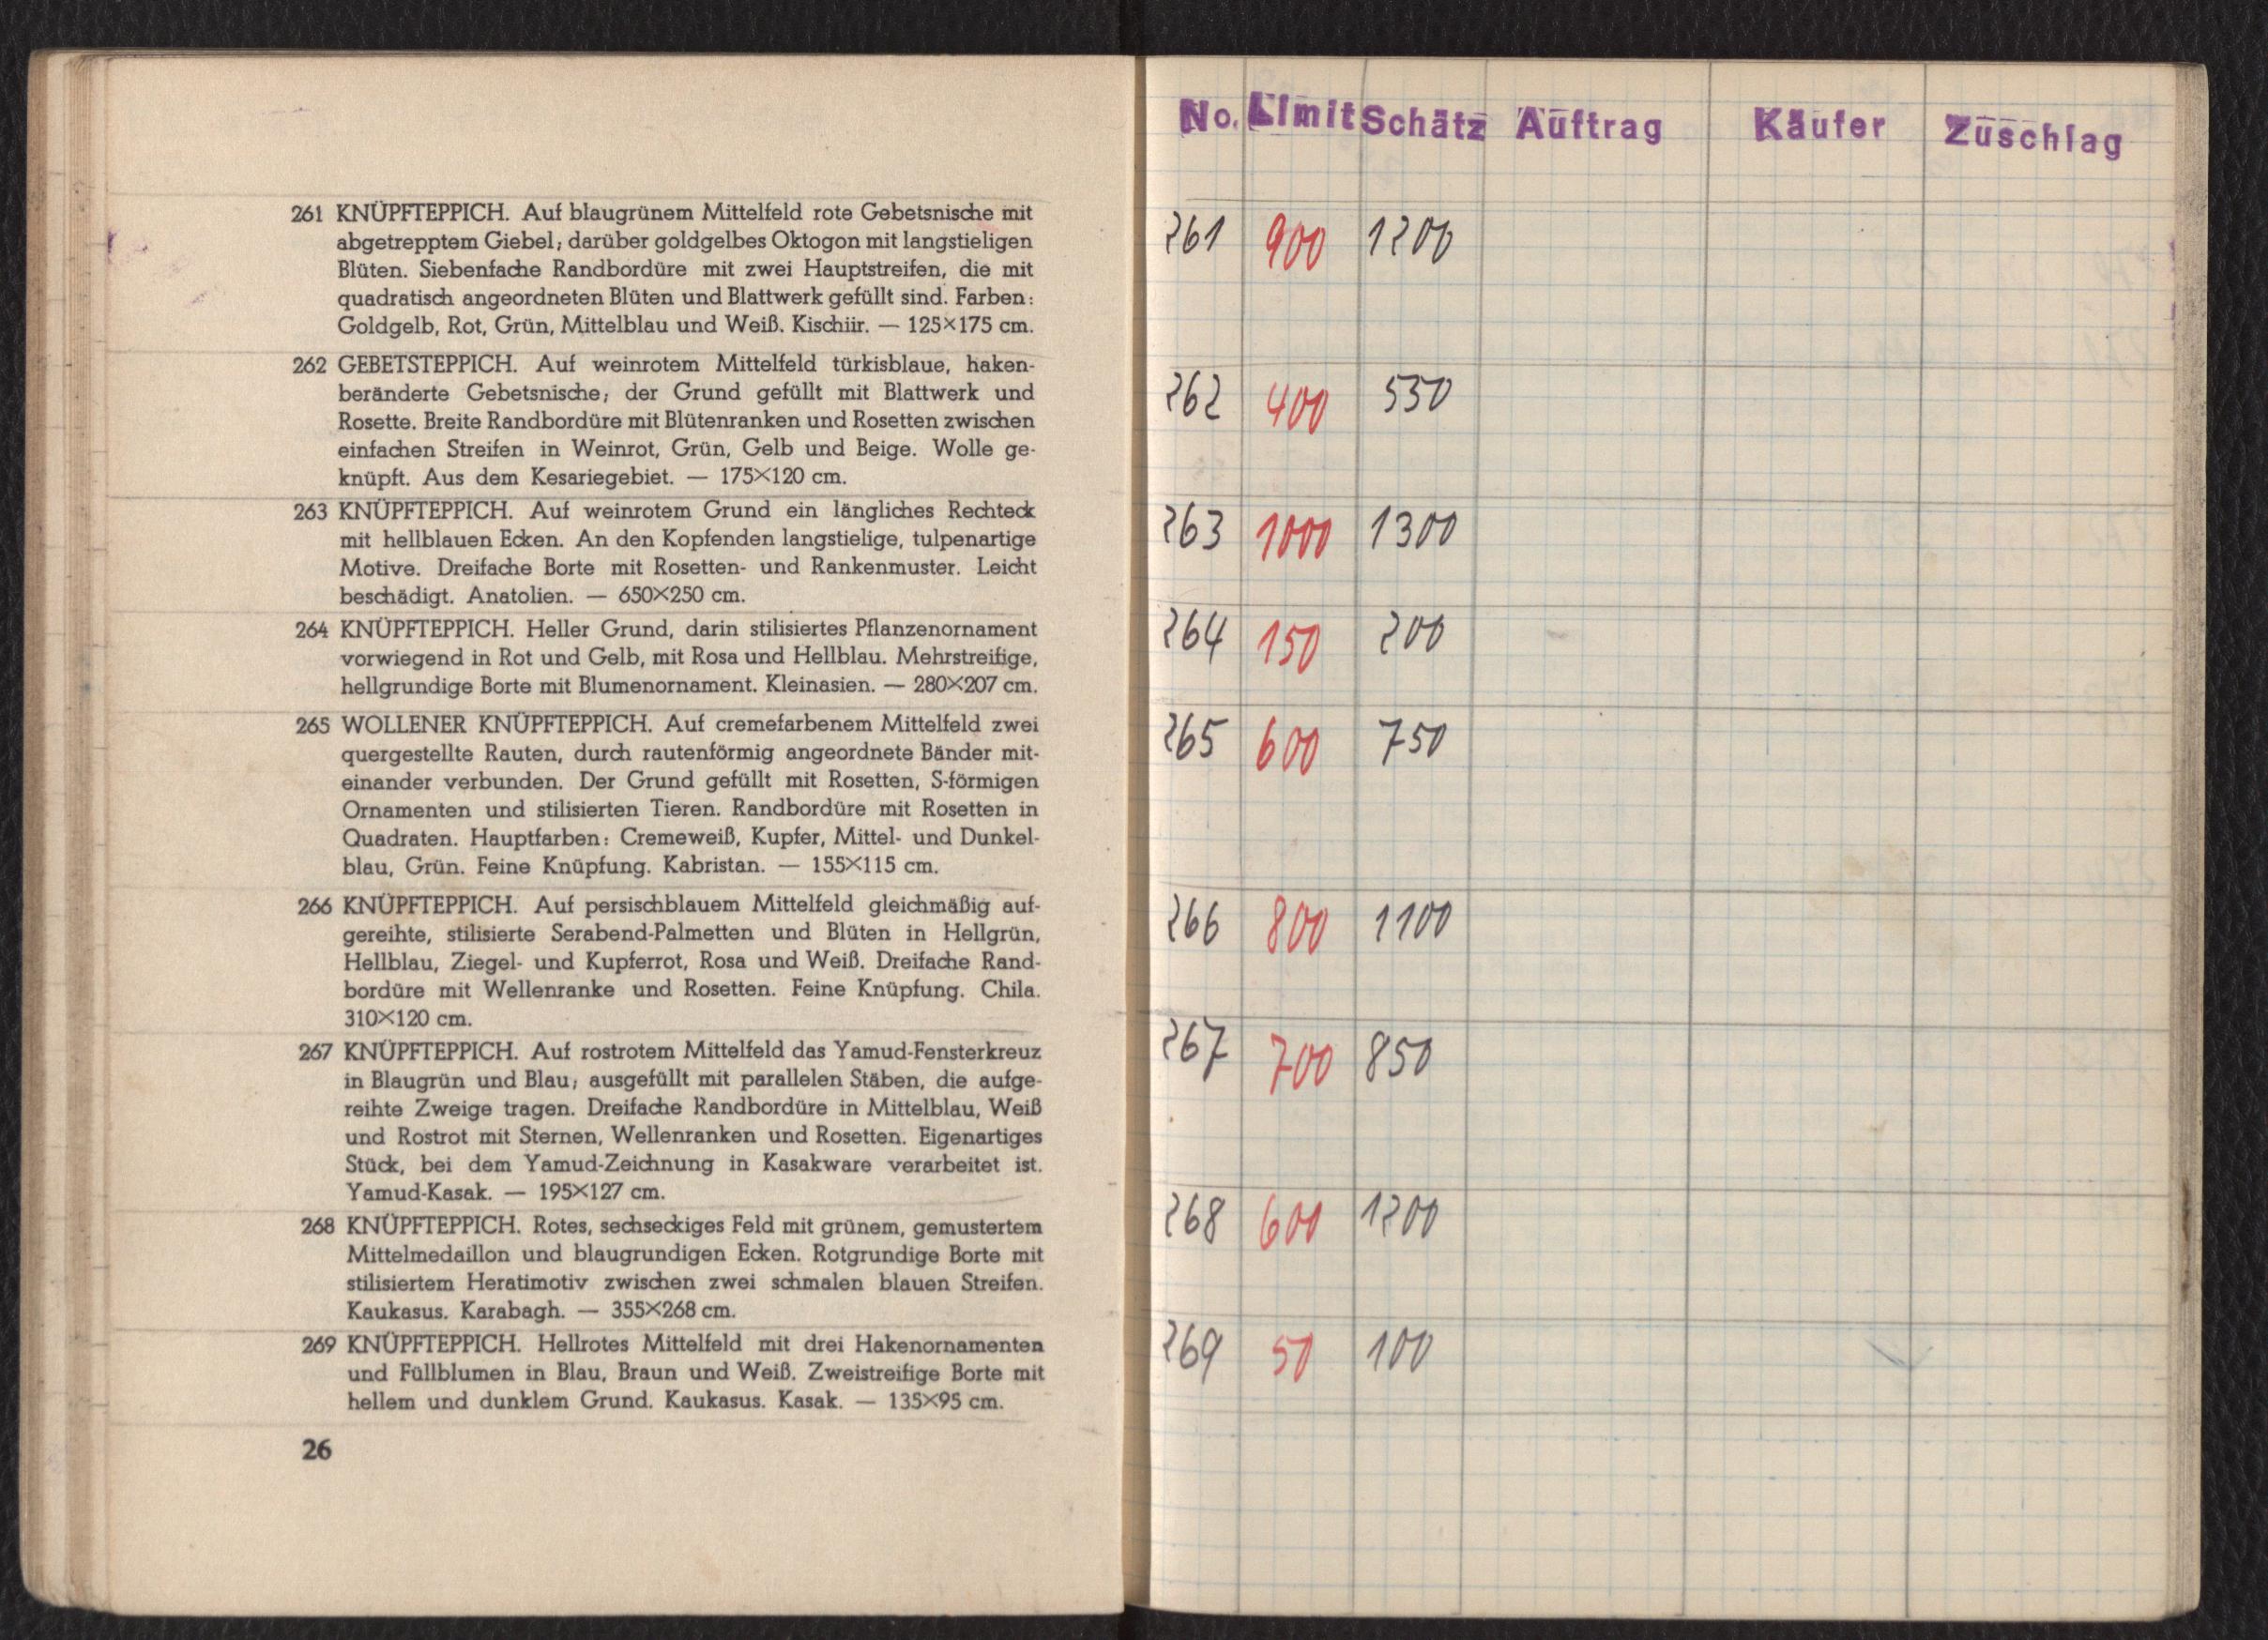 261 KNÜPFTEPPICH. Auf blaugrünem Mittelfeld rote Gebetsnische mit
abgetrepptem Giebel; darüber goldgelbes Oktogon mit langstieligen
Blüten. Siebenfache Randbordüre mit zwei Hauptstreifen, die mit
quadratisch angeordneten Blüten und Blattwerk gefüllt sind. Farben:
Goldgelb, Rot, Grün, Mittelblau und Weiß. Kischiir. — 125×175 cm.
262 GEBETSTEPPICH. Auf weinrotem Mittelfeld türkisblaue, haken-
beränderte Gebetsnische; der Grund gefüllt mit Blattwerk und
Rosette. Breite Randbordüre mit Blütenranken und Rosetten zwischen
einfachen Streifen in Weinrot, Grün, Gelb und Beige. Wolle ge-
knüpft. Aus dem Kesariegebiet. — 175×120 cm.
263 KNÜPFTEPPICH. Auf weinrotem Grund ein längliches Rechteck
mit hellblauen Ecken. An den Kopfenden langstielige, tulpenartige
Motive. Dreifache Borte mit Rosetten- und Rankenmuster. Leicht
beschädigt. Anatolien. — 650×250 cm.
264 KNÜPFTEPPICH. Heller Grund, darin stilisiertes Pflanzenornament
vorwiegend in Rot und Gelb, mit Rosa und Hellblau. Mehrstreifige,
hellgrundige Borte mit Blumenornament. Kleinasien. — 280×207 cm.
265 WOLLENER KNÜPFTEPPICH. Auf cremefarbenem Mittelfeld zwei
quergestellte Rauten, durch rautenförmig angeordnete Bänder mit-
einander verbunden. Der Grund gefüllt mit Rosetten, S-förmigen
Ornamenten und stilisierten Tieren. Randbordüre mit Rosetten in
Quadraten. Hauptfarben: Cremeweiß, Kupfer, Mittel- und Dunkel-
blau, Grün. Feine Knüpfung. Kabristan. — 155×115 cm.
266 KNÜPFTEPPICH. Auf persischblauem Mittelfeld gleichmäßig auf-
gereihte, stilisierte Serabend-Palmetten und Blüten in Hellgrün,
Hellblau, Ziegel- und Kupferrot, Rosa und Weiß. Dreifache Rand-
bordüre mit Wellenranke und Rosetten. Feine Knüpfung. Chila.
310×120 cm.
267 KNÜPFTEPPICH. Auf rostrotem Mittelfeld das Yamud-Fensterkreuz
in Blaugrün und Blau; ausgefüllt mit parallelen Stäben, die aufge-
reihte Zweige tragen. Dreifache Randbordüre in Mittelblau, Weiß
und Rostrot mit Sternen, Wellenranken und Rosetten. Eigenartiges
Stück, bei dem Yamud-Zeichnung in Kasakware verarbeitet ist.
Yamud-Kasak. — 195×127 cm.
268 KNÜPFTEPPICH. Rotes, sechseckiges Feld mit grünem, gemustertem
Mittelmedaillon und blaugrundigen Ecken. Rotgrundige Borte mit
stilisiertem Heratimotiv zwischen zwei schmalen blauen Streifen.
Kaukasus. Karabagh. — 355×268 cm.
269 KNÜPFTEPPICH. Hellrotes Mittelfeld mit drei Hakenornamenten
und Füllblumen in Blau, Braun und Weiß. Zweistreifige Borte mit
hellem und dunklem Grund. Kaukasus. Kasak. — 135×95 cm.
26
No. Limit Schätz Auftrag Käufer Zuschlag
261 900 1200
262 400 550
263 1000 1300
264 150 200
265 600 750
266 800 1100
267 700 850
268 600 1200
269 50 100